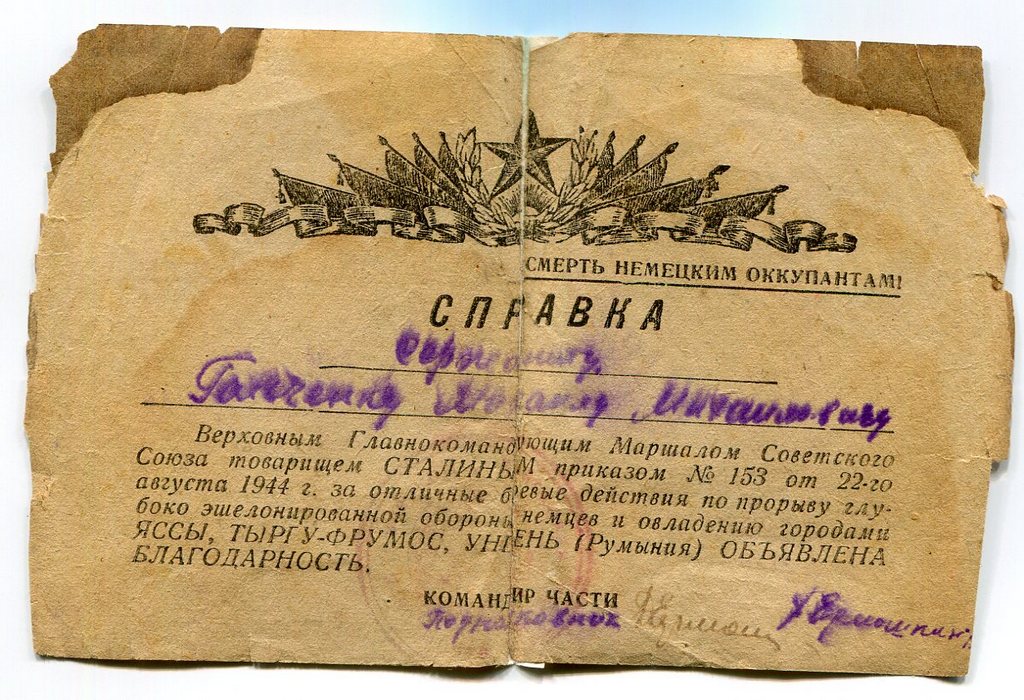 СМЕРТЬ НЕМЕЦКИМ ОККУПАНТАМ!
СПРАВКА
Сержанту
Михаилу Михайловичу
Верховным Главнокомандующим Маршалом Советского
Союза товарищем СТАЛИНЫМ приказом № 153 от 22-го
августа 1944 г. за отличные боевые действия по прорыву глу-
боко эшелонированной обороны немцев и овладению городами
ЯССЫ, ТЫРГУ-ФРУМОС, УНГЕНЬ (Румыния) ОБЪЯВЛЕНА
БЛАГОДАРНОСТЬ.
КОМАНДИР ЧАСТИ
Подполковник